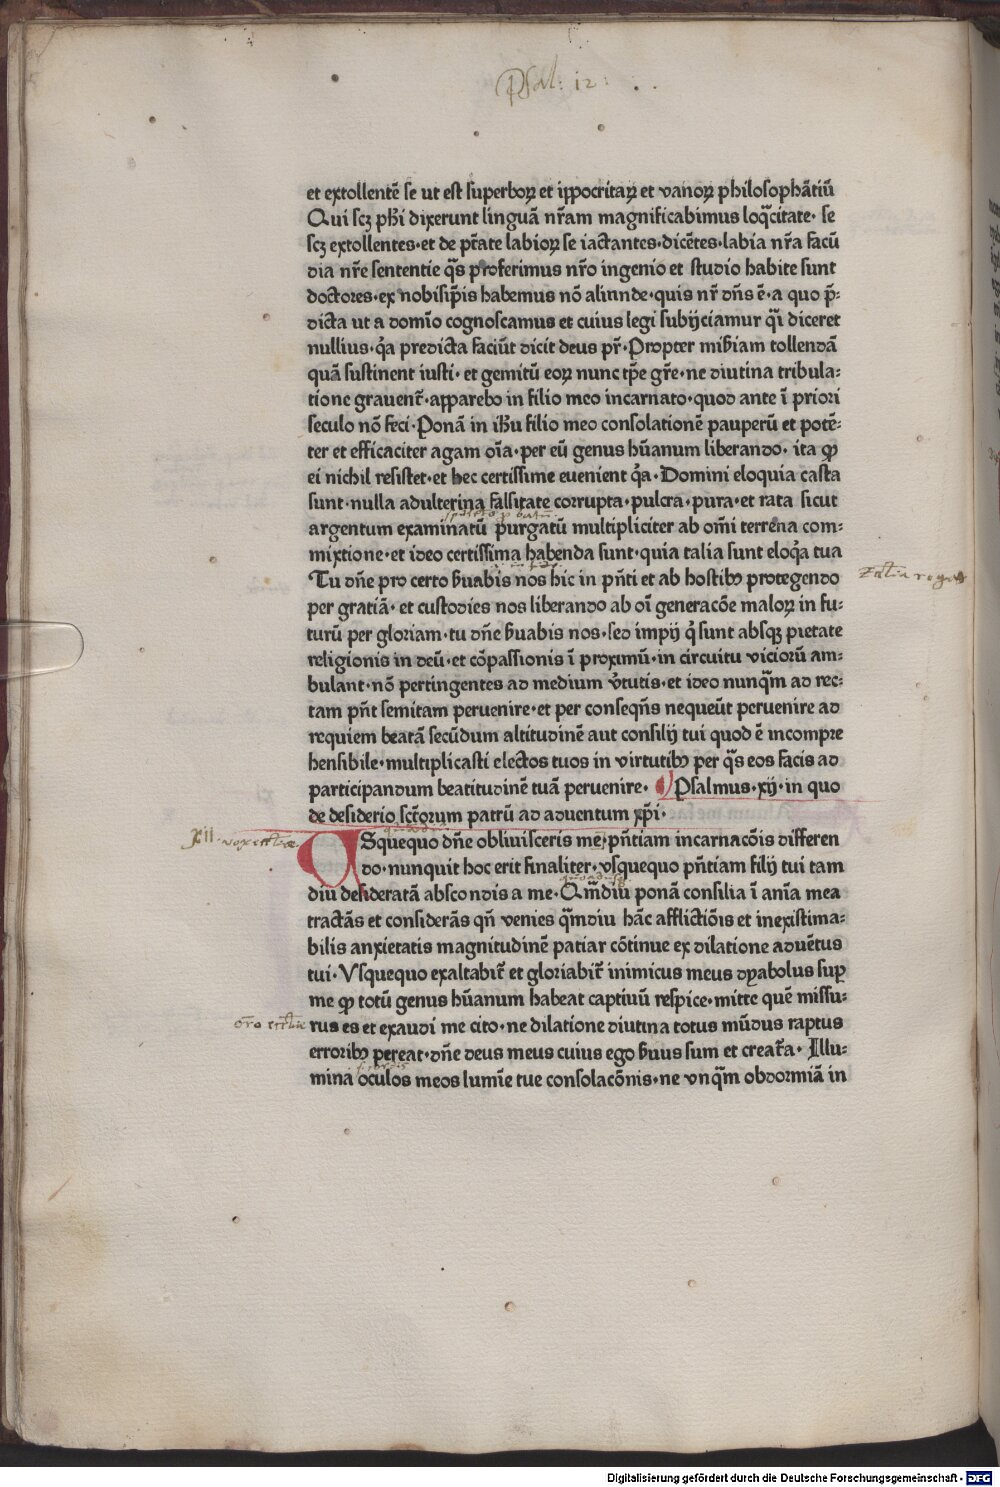 Psal: 12:
et extollentē se ut est superboꝝ et ippocritaꝝ et vanoꝝ philosophātiū
Qui scꝫ phi dixerunt linguā nr̄am magnificabimus loq̄citate· se
scꝫ extollentes·et de pt̄ate labioꝝ se iactantes·dicētes·labia nr̄a facū
dia nr̄e sententie q̄s proferimus nr̄o ingenio et studio habite sunt
doctores·ex nobisip̄is habemus nō aliunde·quis nr̄ dn̄s ē·a quo p̄:
dicta ut a domīo cognoscamus et cuius legi subijciamur q̄i diceret
nullius·q̄a predicta faciūt dicit deus pr̄·Propter mis̄iam tollendā
quā sustinent iusti·et gemitū eoꝝ nunc tp̄e gr̄e·ne diutina tribula:
tione grauent̄·apparebo in filio meo incarnato·quod ante ī priori
seculo nō feci·Ponā in ih̄u filio meo consolationē pauperū et potē:
ter et efficaciter agam oīa·per eū genus hūanum liberando· ita ꝙ
ei nichil resistet·et hec certissime euenient q̄a·Domini eloquia casta
sunt·nulla adulterina falsitate corrupta·pulcra·pura·et rata sicut
argentum examinatū purgatū multipliciter ab om̄i terrena com:
mixtione·et ideo certissima habenda sunt·quia talia sunt eloq̄a tua
Tu dn̄e pro certo s̄uabis nos hic in pn̄ti et ab hostibꝫ protegendo
per gratiā·et custodies nos liberando ab oī generacōe maloꝝ in fu:
turū per gloriam·tu dn̄e s̄uabis nos·sed impij q̄ sunt absqꝫ pietate
religionis in deū·et cōpassionis ī proximū·in circuitu viciorū am:
bulant·nō pertingentes ad medium v̄tutis·et ideo nunq̄m ad rec:
tam pn̄t semitam peruenire·et per conseqn̄s nequeūt peruenire ad
requiem beatā secūdum altitudinē aut consilij tui quod ē incompre
hensibile·multiplicasti electos tuos in virtutibꝫ per q̄s eos facis ad
participandum beatitudinē tuā peruenire· Psalmus·xij·in quo
de desiderio sctōrum patrū ad aduentum xp̄i·
XII
USquequo dn̄e obliuisceris me·pn̄tiam incarnacōis differen
do·nunquit hoc erit finaliter·vsquequo pn̄tiam filij tui tam
diu desideratā abscondis a me·Qm̄diu ponā consilia ī anīa mea
tractās et considerās qn̄ venies q̄mdiu hāc afflictiōis et inexistima:
bilis anxietatis magnitudinē patiar cōtinue ex dilatione aduētus
tui·Vsquequo exaltabit̄ et gloriabit̄ inimicus meus dyabolus suꝑ
me ꝙ totū genus hūanum habeat captiuū respice·mitte quē missu:
rus es et exaudi me cito·ne dilatione diutina totus mūdus raptus
erroribꝫ pereat·dn̄e deus meus cuius ego s̄uus sum et creat̄a· Illu:
mina oculos meos lumīe tue consolacōnis·ne vnq̄m obdormiā in
Digitalisierung gefördert durch die Deutsche Forschungsgemeinschaft - DFG